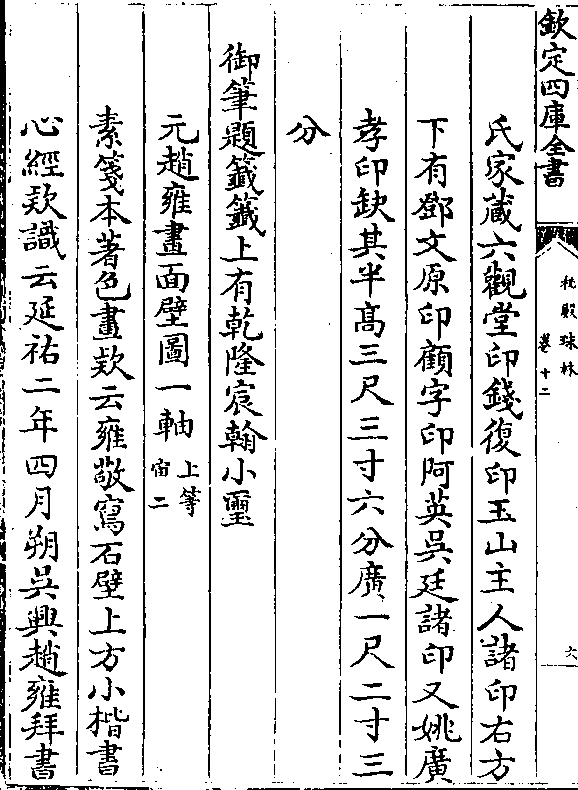 欽定四庫全書
秘殿珠林
卷十二
六
氏家藏六觀堂印錢復印玉山主人諸印右方
下有鄧文原印顧字印阿英吳廷諸印又姚廣
孝印缺其半高三尺三寸六分廣一尺二寸三
分
御筆題籤籤上有乾隆宸翰小璽
元趙雍畫面壁圖一軸 上等 宙二
素箋本著色畫欵云雍敬寫石壁上方小楷書
心經欵識云延祐二年四月朔吳興趙雍拜書